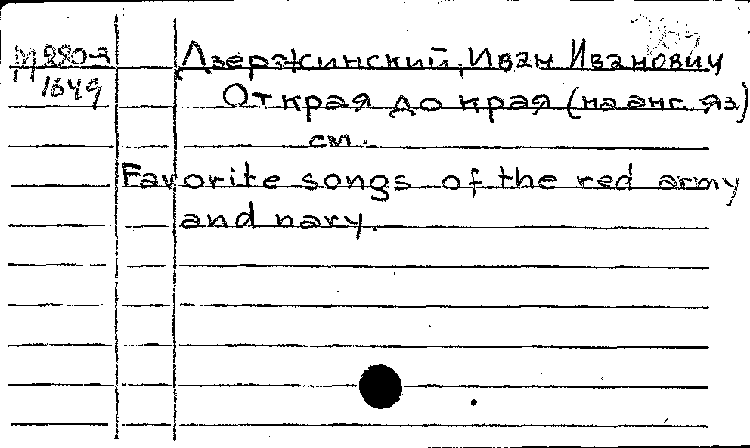 М 280-3
1649
Дзержинский, Иван Иванович
От края до края (на анг. яз)
см.
Favorite songs of the red army
and navy.